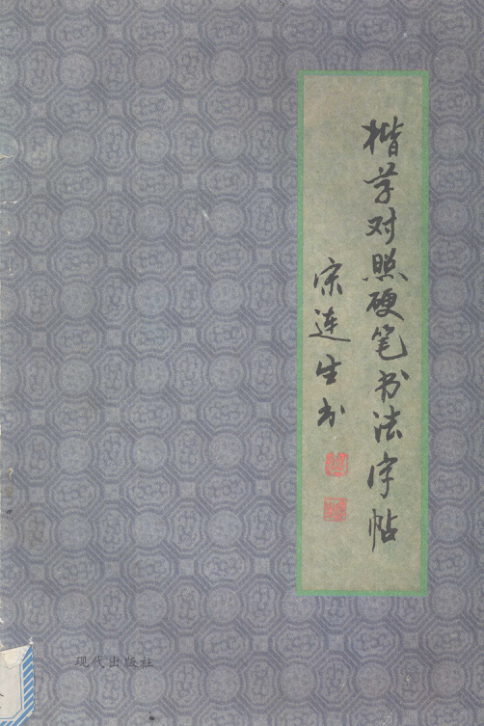 楷草对照硬笔书法字帖
宋连生书
现代出版社